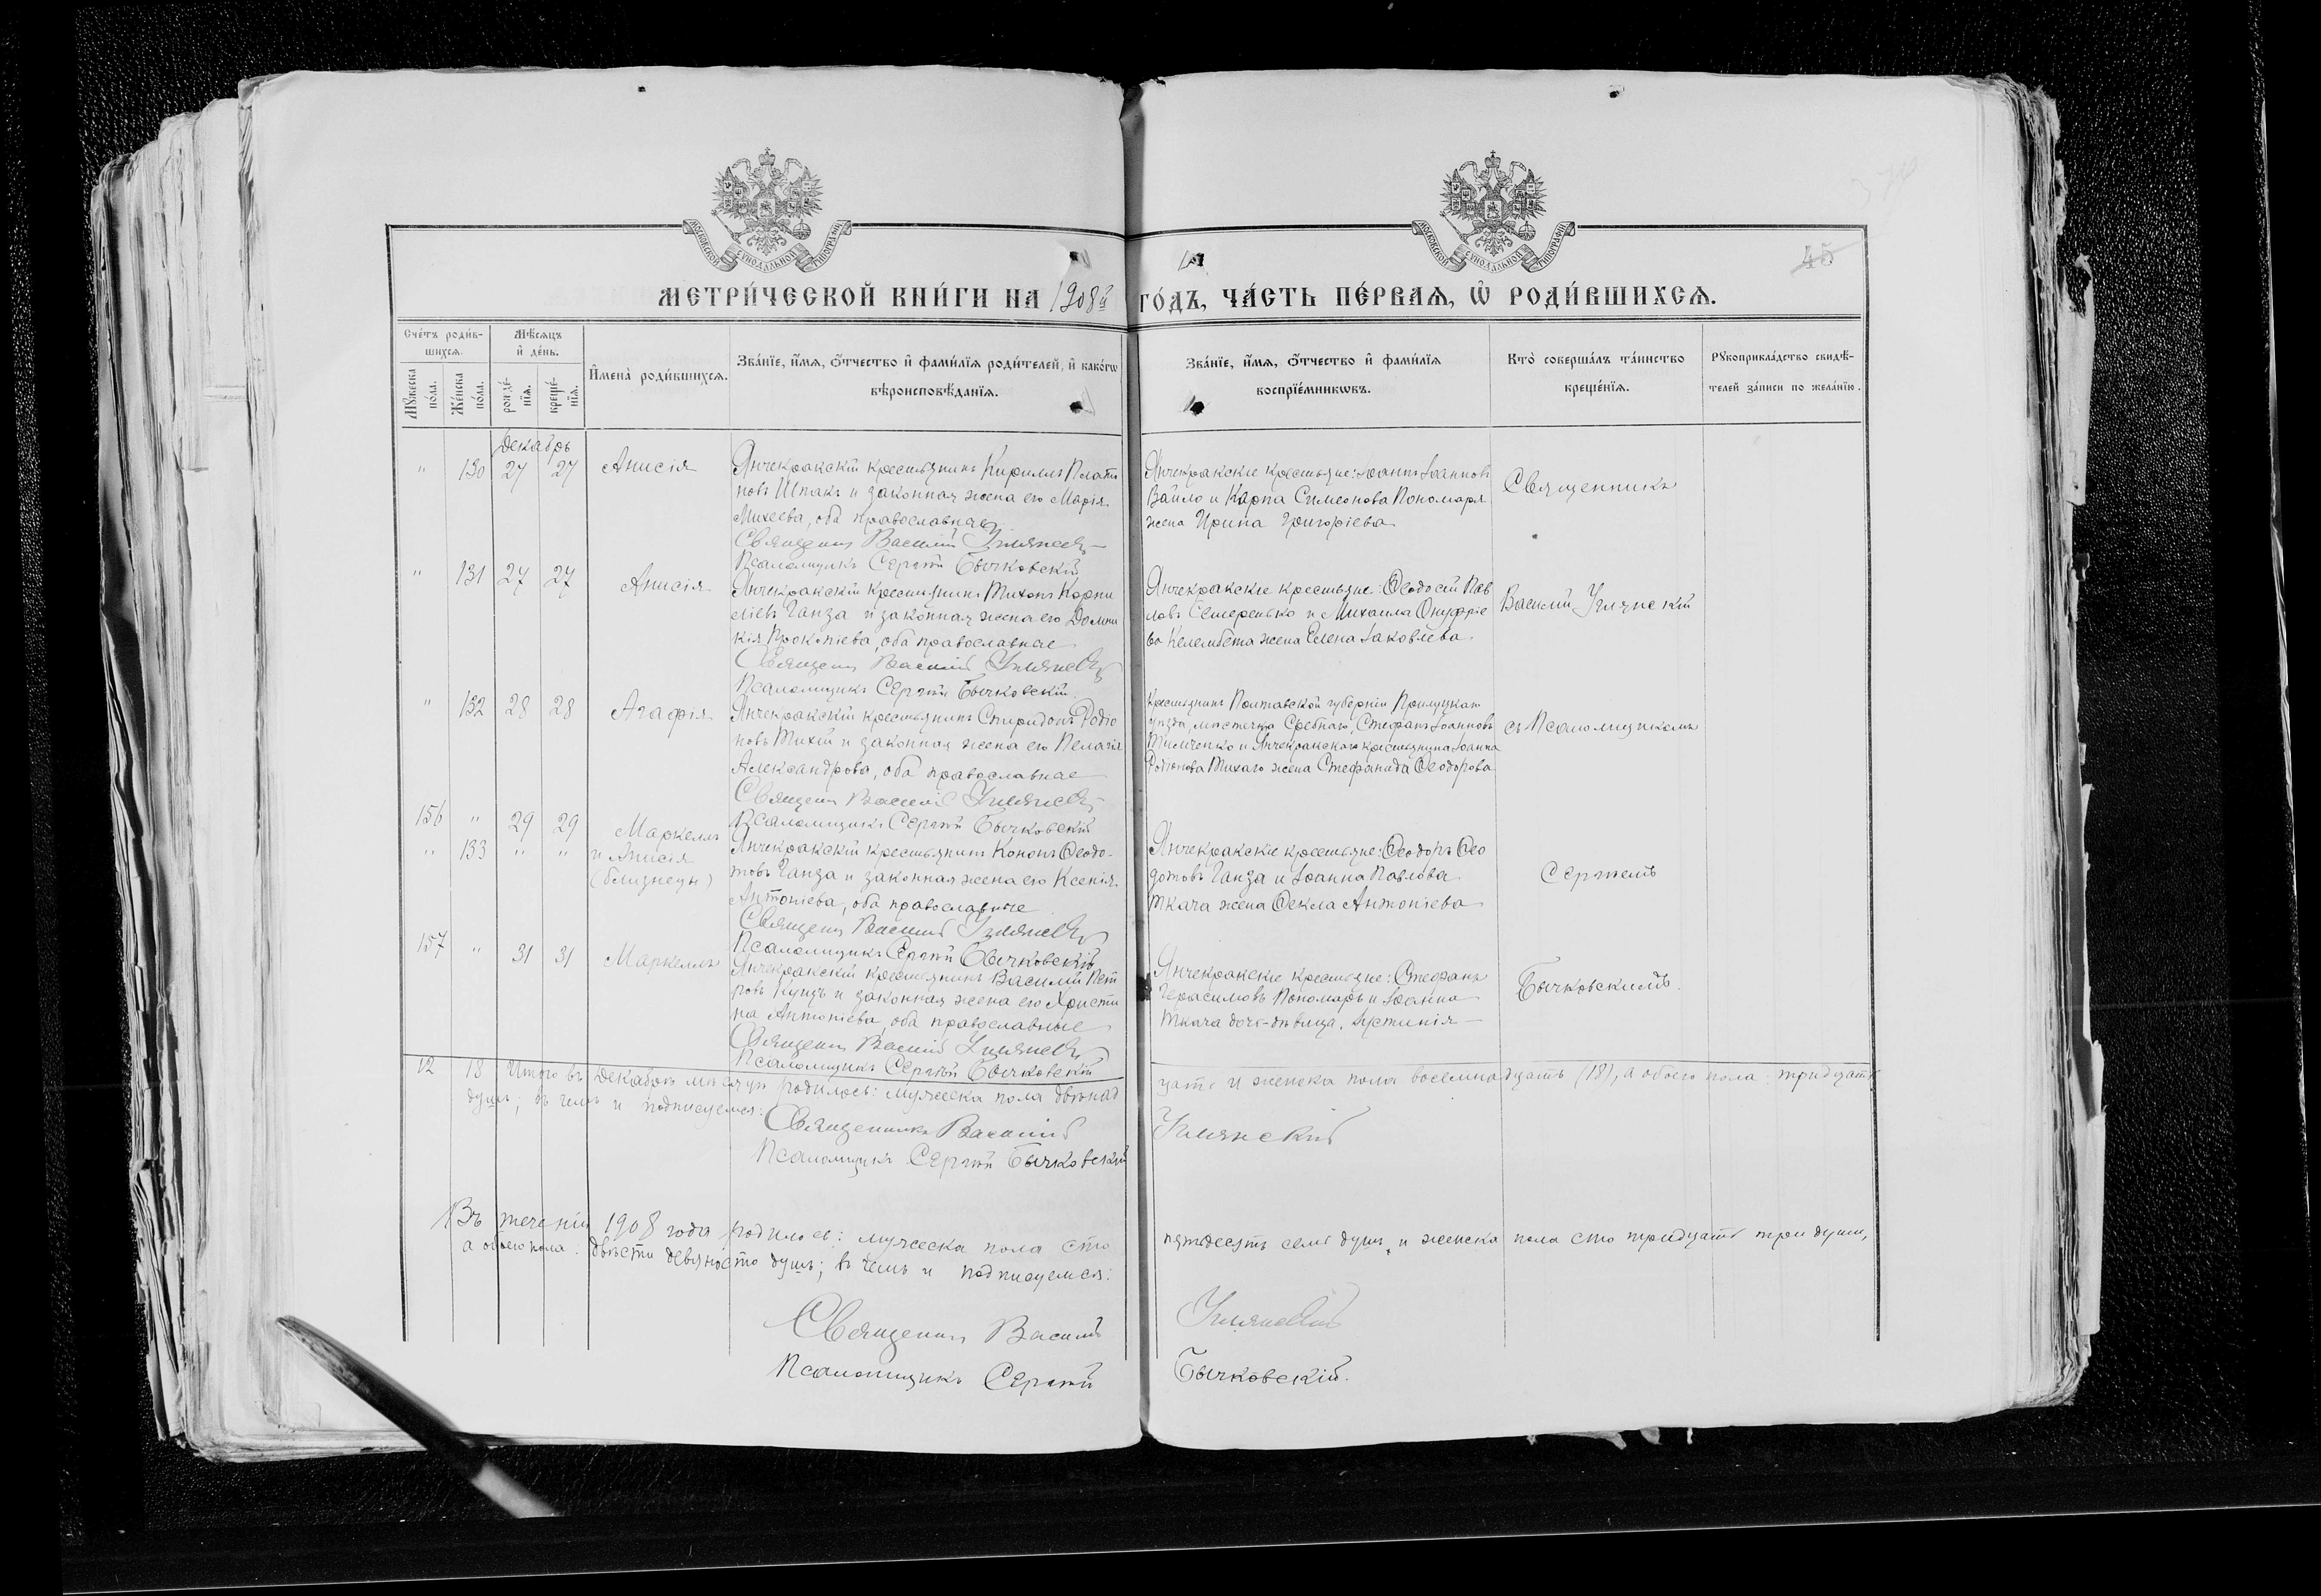 МОСКОВСКОЙ СѴНОДАЛЬНОЙ ТИПОГРАФІИ
МОСКОВСКОЙ СѴНОДАЛЬНОЙ ТИПОГРАФІИ
45
МЕТРИ́ЧЕСКОЙ КНИ́ГИ НА 1908й ГО́ДЪ, ЧА́СТЬ ПЕ́РВАѦ, Ѡ РОДИ́ВШИХСѦ.
Сче́тъ роди́в-
шихсѧ.
Мꙋ́жеска по́ла.
Же́нска по́ла.
Мѣ́сѧцъ
и҆ де́нь.
рожде́-нїѧ.
креще́-нїѧ.
И҆мена̀ роди́вшихсѧ.
Зва́нїе, и҆́мѧ, ѻ҆́тчество и҆ фами́лїѧ роди́телей, и҆ како́гѡ
вѣроисповѣ́данїѧ.
Зва́нїе, и҆́мѧ, ѻ҆́тчество и҆ фами́лїѧ
воспрїе́мникѡвъ.
Кто̀ соверша́лъ та́инство
креще́нїѧ.
Рꙋкоприкла́дство свидѣ́-
телей за́писи по жела́нїю.
Декабрь
" 130 27 27 Анисія
Янчекракскій крестьянинъ Кириллъ Плато
новъ Шпакъ и законная жена его Марія
Михеева, оба православные
Священ Василій Уплянскій
Псаломщикъ Сергій Бычковскій
Янчекракскіе крестьяне: Іоаннъ Іоанновъ
Вайло и Карпа Симеонова Пономаря
жена Ирина Григоріева
Священникъ
" 131 27 27 Анисія
Янчекракскій крестьянинъ Тихонъ Корни
ліевъ Ганза и законная жена его Домни
кія Прокопіева, оба православные
Священ Василій
Псаломщикъ Сергій Бычковскій
Янчекракскіе крестьяне: Ѳеодосій Пав
ловъ Семеренько и Михаила Онуфріе
ва Келембета жена Елена Іаковлева
Василій
" 132 28 28 Агафія
Янчекракскій крестьянинъ Спиридонъ Родіо
новъ Тихій и законная жена его Пелагія
Александрова, оба православные
Священ Василій
Псаломщикъ Сергій Бычковскій
Крестьянинъ Полтавской губерніи Прилуцкаго
уѣзда, мѣстечка Сребнаго, Стефанъ Іоанновъ
и Янчекракскаго крестьянина Іоанна
Родіонова Тихаго жена Стефанида Ѳеодорова
съ Псаломщикомъ
156 " 29 29 Маркеллъ
" 133 " " и Анисія
(близнецы)
Янчекракскій крестьянинъ Кононъ Ѳеодо-
товъ Ганза и законная жена его Ксенія
Антоніева, оба православные
Священ Василій
Псаломщикъ Сергій Бычковскій
Янчекракскіе крестьяне: Ѳеодоръ Ѳео
дотовъ Ганза и Іоанна Павлова
Ткача жена Ѳекла Антоніева
Сергіемъ
157 " 31 31 Маркеллъ
Янчекракскій крестьянинъ Василій Пет
ровъ Куцъ и законная жена его Христи
на Антоніева, оба православные
Священ Василій
Псаломщикъ Сергій Бычковскій
Янчекракскіе крестьяне: Стефанъ
Герасимовъ Пономарь и Іоанна
Ткача дочь-дѣвица, Іустинія
Бычковскимъ.
12 18 Итого въ Декабрѣ мѣсяцѣ родилось: мужеска пола двѣнад
цать и женска пола восемнадцать (18), а обоего пола тридцать
душъ; въ чемъ и подписуемся:
Священникъ Василій
Псаломщикъ Сергій Бычковскій
Въ теченіи 1908 года родилось: мужеска пола сто
пятьдесятъ семь душъ, и женска пола сто тридцать три души,
а обоего пола: двѣсти девяносто душъ; въ чемъ и подписуемся:
Священ Василій
Псаломщикъ Сергій Бычковскій.